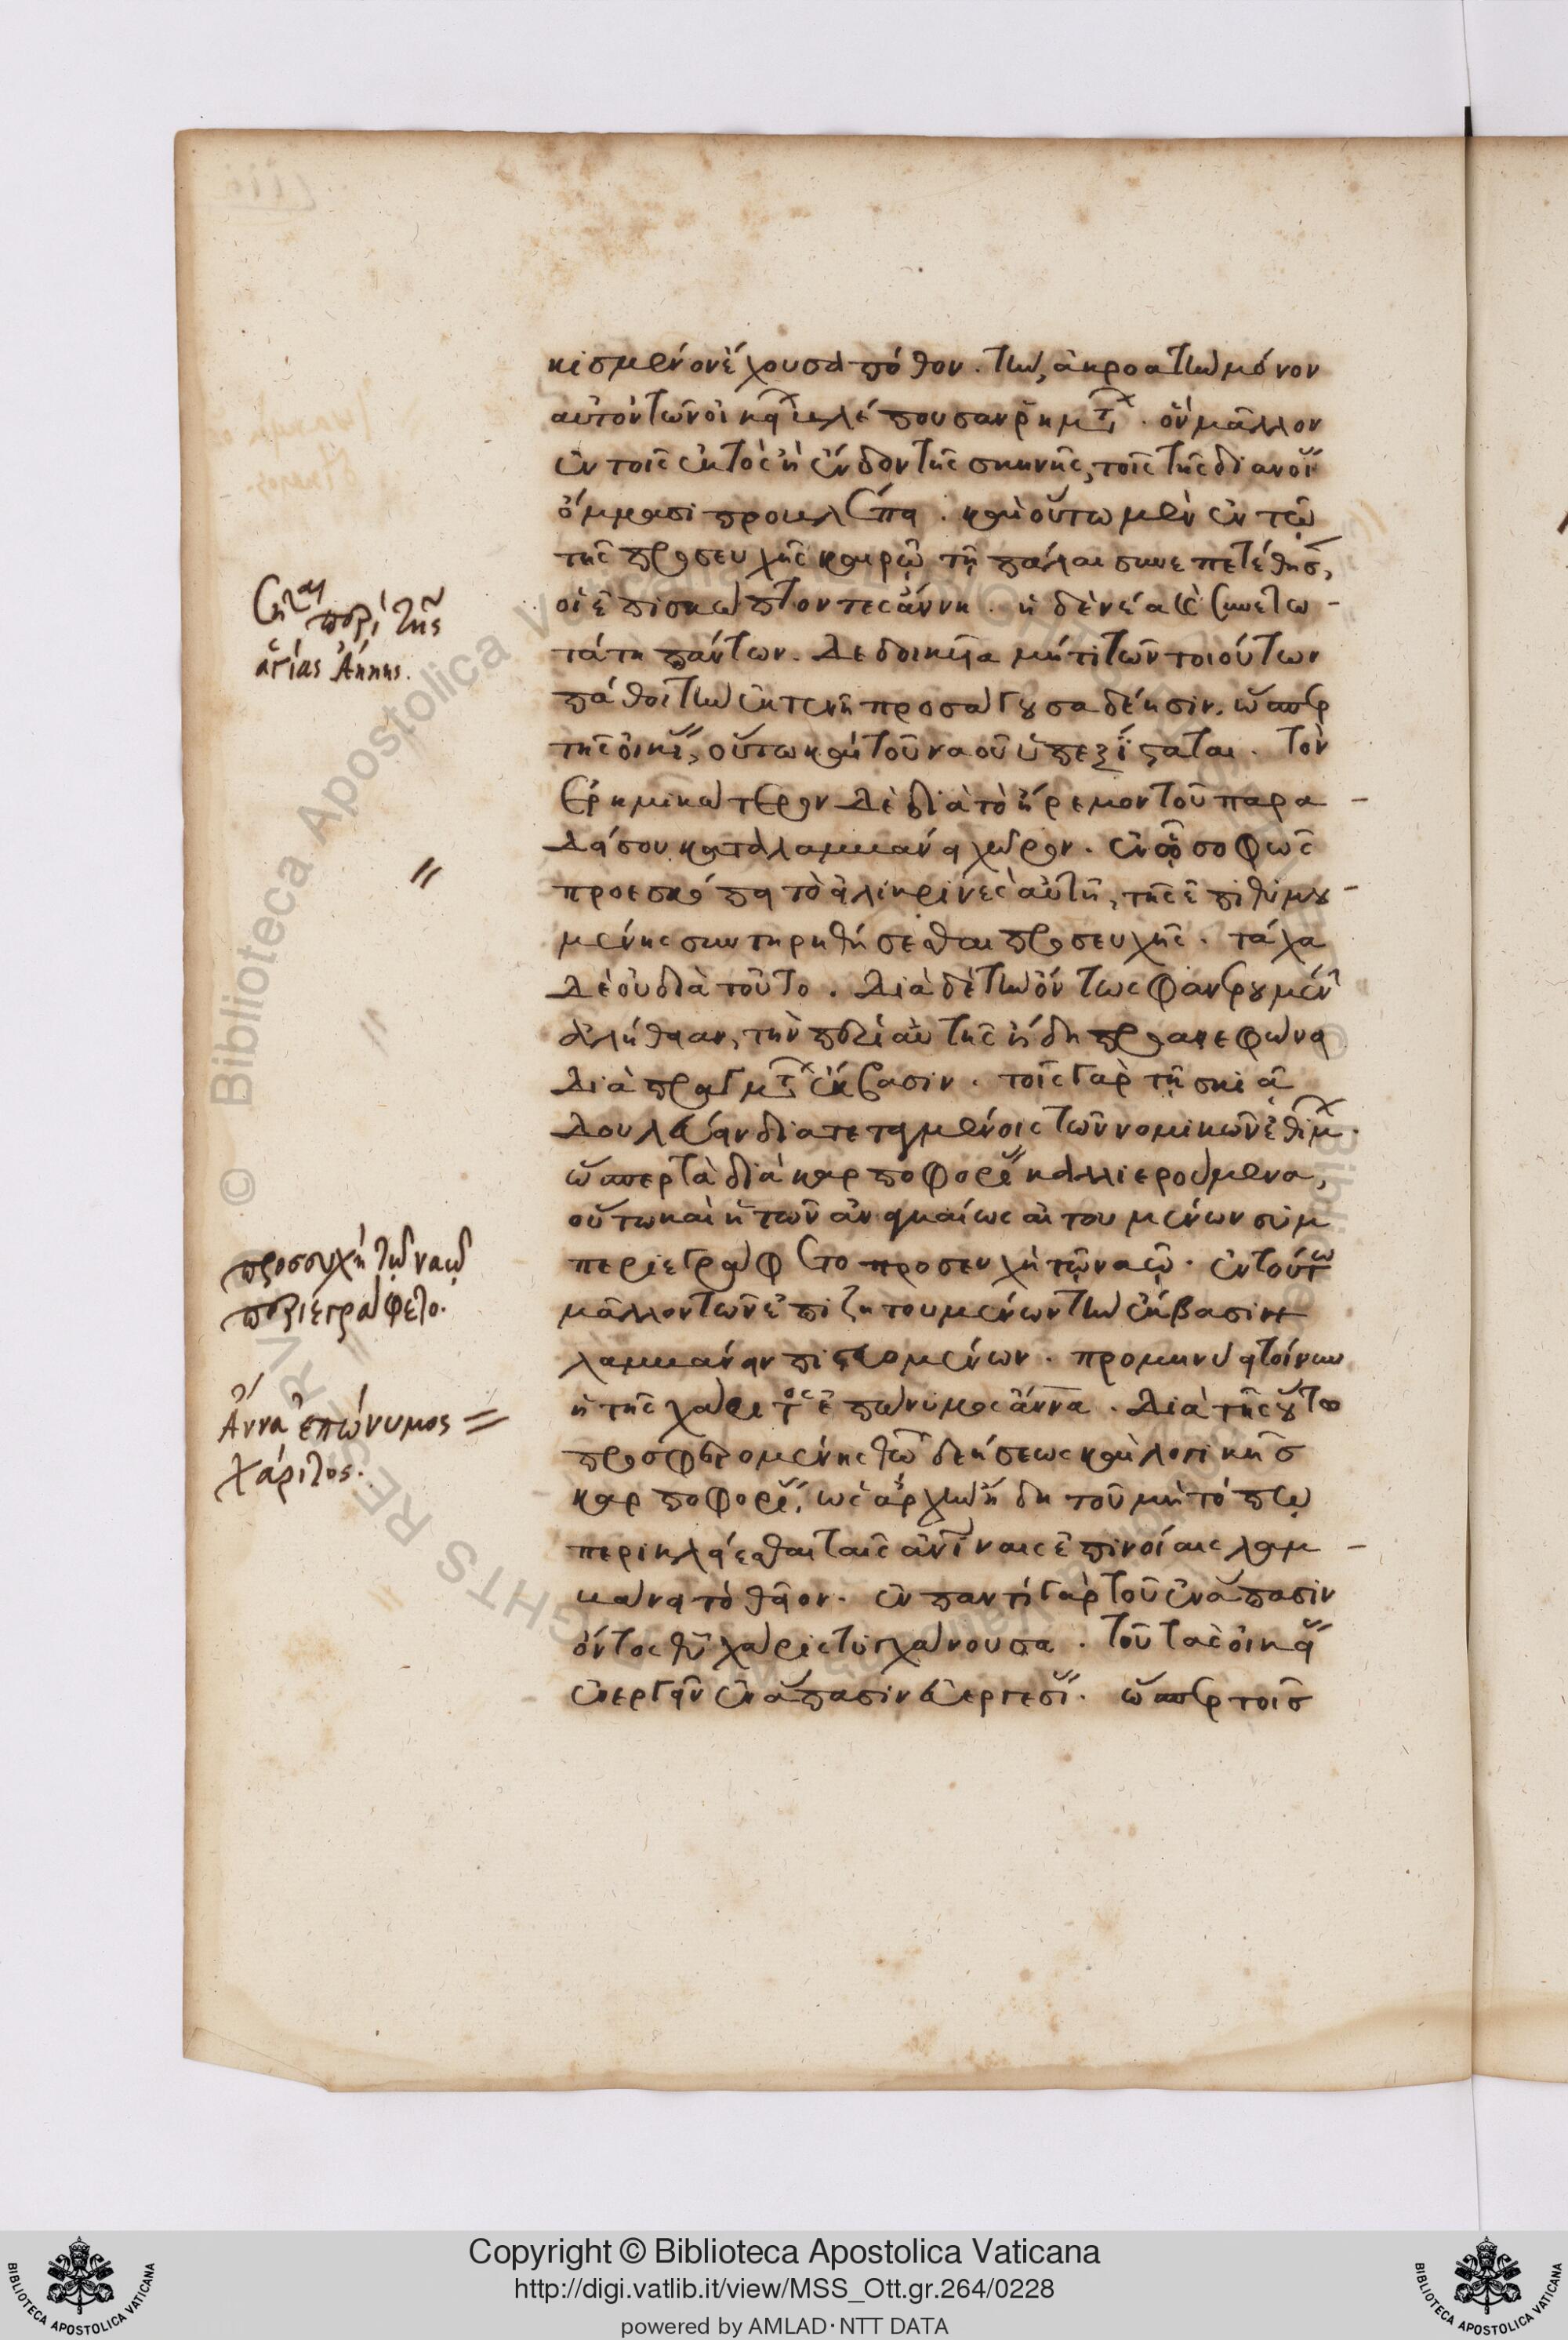 κισμένον ἔχουσα πόθον. τὴν, ἀκροατὴν μόνον
αὐτὸν τῶν οἰκεί βλέπουσαν ῥημτ. ὃν μᾶλλον
ἐν τοῖς ἐκτὸς ἢ ἔνδον τῆς σκηνῆς, τοῖς τῆς διανοί
ὄμμασι προβλέπει. καὶ οὕτω μὲν ἐν τῷ
τῆς προσευχῆς καιρῷ τῇ πάλαι συνεπετέθησ,
οἱ ἐπισκώπτοντες ἄννῃ. ἡ δὲ νέα καὶ συνετω-
τάτη πάντων. δεδοικυῖα μή τι τῶν τοιούτων
πάθοι τὴν ἐκτενῆ προσάγουσα δέησιν. ὥσπερ
τῆς οἰκί, οὕτω καὶ τοῦ ναοῦ ὑπεξίσταται. τὸν
ἐρημικώτερον δὲ διὰ τὸ ἤρεμον τοῦ παρα-
δείσου καταλαμβάνει χῶρον. ἐν ᾧ σοφῶς
προεσκόπει τὸ εἰλικρινὲς αὐτῆ, τῆς ἐπιθυμου-
μένης συντηρηθήσεσθαι προσευχῆς. τάχα
δὲ οὐ διὰ τοῦτο. διὰ δὲ τὴν ὄντως φανερουμέν
ἀλήθειαν, τὴν περὶ αὐτῆς ἤδη προανεφώνει
διὰ πραγμτ ἔκβασιν. τοῖς γὰρ τῇ σκιᾷ
δουλεύειν διατεταγμένοις τῶν νομικῶν ἐθίμ.
ὥσπερ τὰ διὰ καρποφορί καλλιερούμενα,
οὕτω καὶ ἡ τῶν ἀναγκαίως αἰτουμένων συμ
περιεγράφετο προσευχὴ τῷ ναῷ. ἐν τούτω
μᾶλλον τῶν ἐπιζητουμένων τὴν ἔκβασιν
λαμβάνειν πιστουμένων. προμηνύει τοίνυν
ἡ τῆς χάριτος ἐπώνυμος ἄννα. διὰ τῆς οὕτω
προσφερομένης θῶ δεήσεως καὶ λογικῆς
καρποφορί, ὡς ἀρχὴν ἤδη τοῦ μὴ τόπῳ
περικλείεσθαι ταῖς ἀνίναις ἐπινοίαις λαμ-
βάνει τὸ θεῖον. ἐν παντὶ γὰρ τοῦ ἐν ἅπασιν
ὄντος θυ χάρις τυγχάνουσα. τοῦ τὰς οἰκεί
ἐνεργεῖν ἐν ἅπασιν εὐεργεσί. ὥσπερ τοῖς
περὶ τῆς
ἁγίας Ἄννης.
προσευχὴ τῷ ναῷ
περιεγράφετο.
Ἄννα ἐπώνυμος
χάριτος.
Copyright © Biblioteca Apostolica Vaticana
http://digi.vatlib.it/view/MSS_Ott.gr.264/0228
powered by AMLAD·NTT DATA